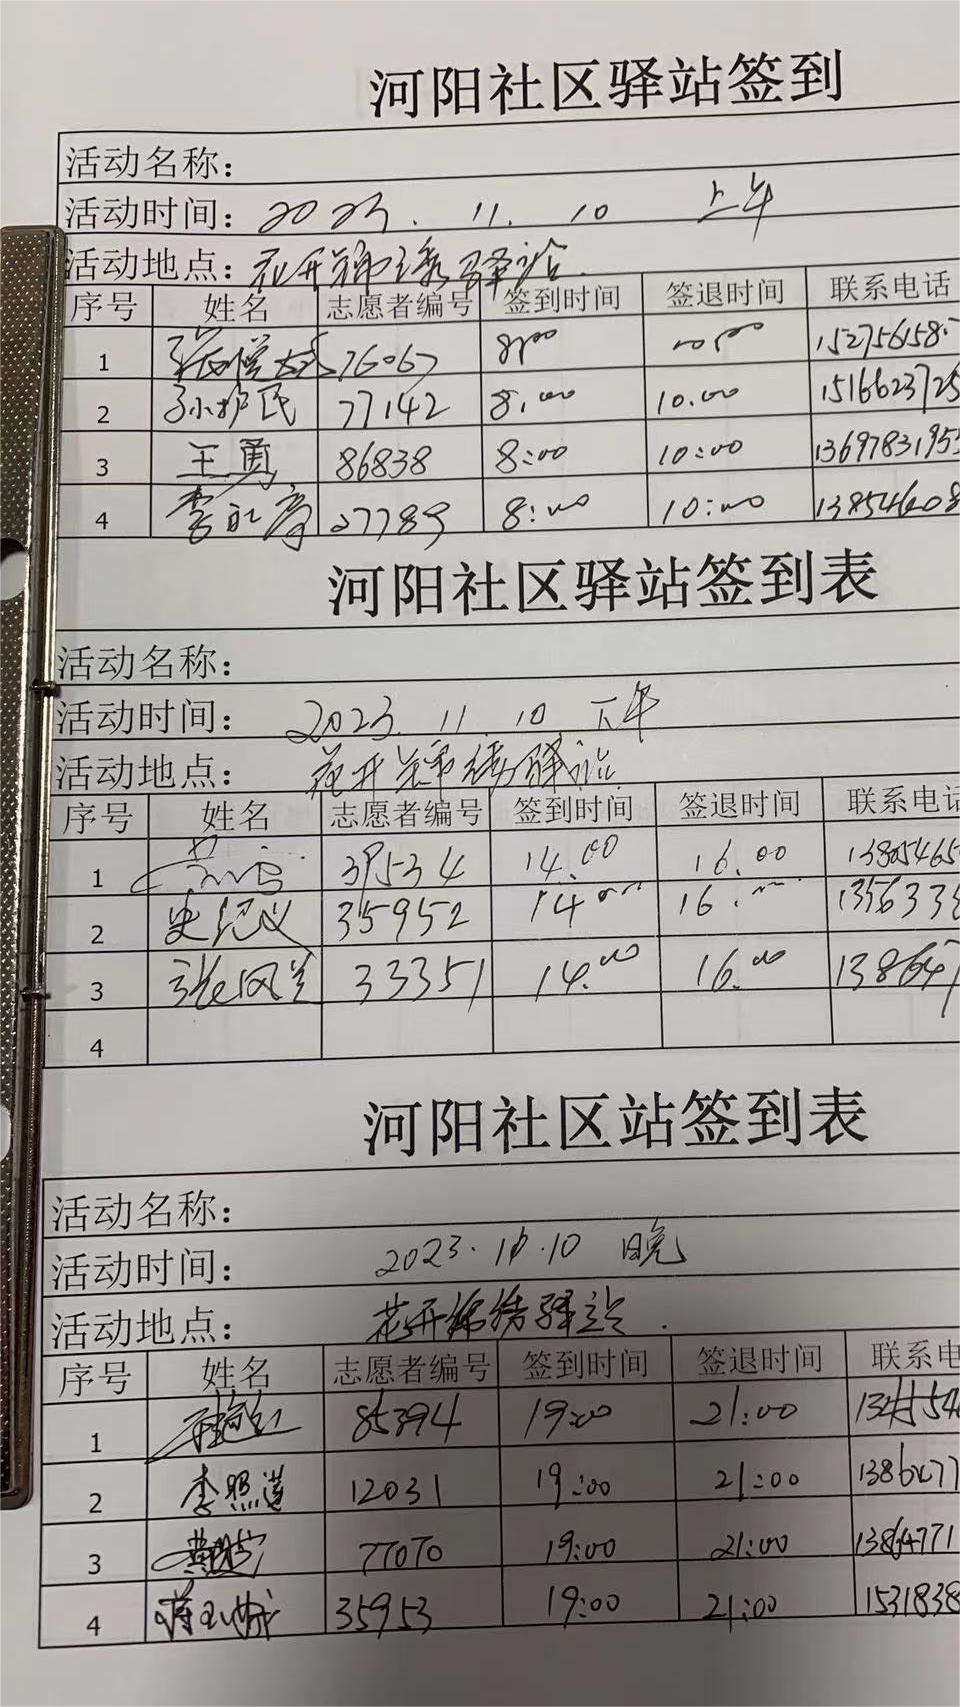 河阳社区驿站签到
活动名称：
活动时间：2023. 11. 10 上午
活动地点：花开锦绣驿站.
序号 姓名 志愿者编号 签到时间 签退时间 联系电话
1 76067 8:00 152756158
2 孙护民 77142 8:00 10:00 1516623725
3 王勇 86838 8:00 10:00 1369783195
4 27789 8:00 10:00 138546208
河阳社区驿站签到表
活动名称：
活动时间：2023. 11. 10 下午
活动地点：花开锦绣驿站
序号 姓名 志愿者编号 签到时间 签退时间 联系电话
1 39534 14.00 16.00 13805465
2 史纪义 35952 14.00 16.00 1356338
3 张风兰 33351 14.00 16.00 138647
4
河阳社区站签到表
活动名称：
活动时间：2023.11.10 晚
活动地点：花开锦绣驿站.
序号 姓名 志愿者编号 签到时间 签退时间 联系电
1 85394 19:00 21:00
2 李照道 12031 19:00 21:00 1386477
3 77070 19:00 21:00 13864771
4 35953 19:00 21:00 1531838